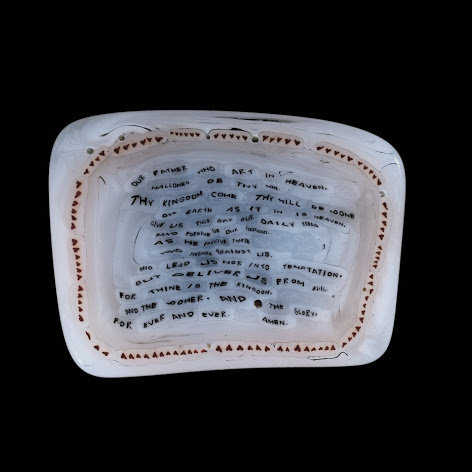 OUR FATHER WHO ART IN HEAVEN.
HALLOWED BE THY
THY KINGDOM COME THY WILL BE DONE
ON EARTH AS IT IN IS HEAVEN.
GIVE US THIS DAY OUR DAILY BREAD
AND FORGIVE US OUR
AS WE FORGIVE THOSE
AGAINST US.
AND LEAD US NOT INTO TEMPTATION.
BUT DELIVER US FROM EVIL.
FOR THINE IS THE KINGDOM.
AND THE POWER. AND THE GLORY.
FOR EVER AND EVER. AMEN.